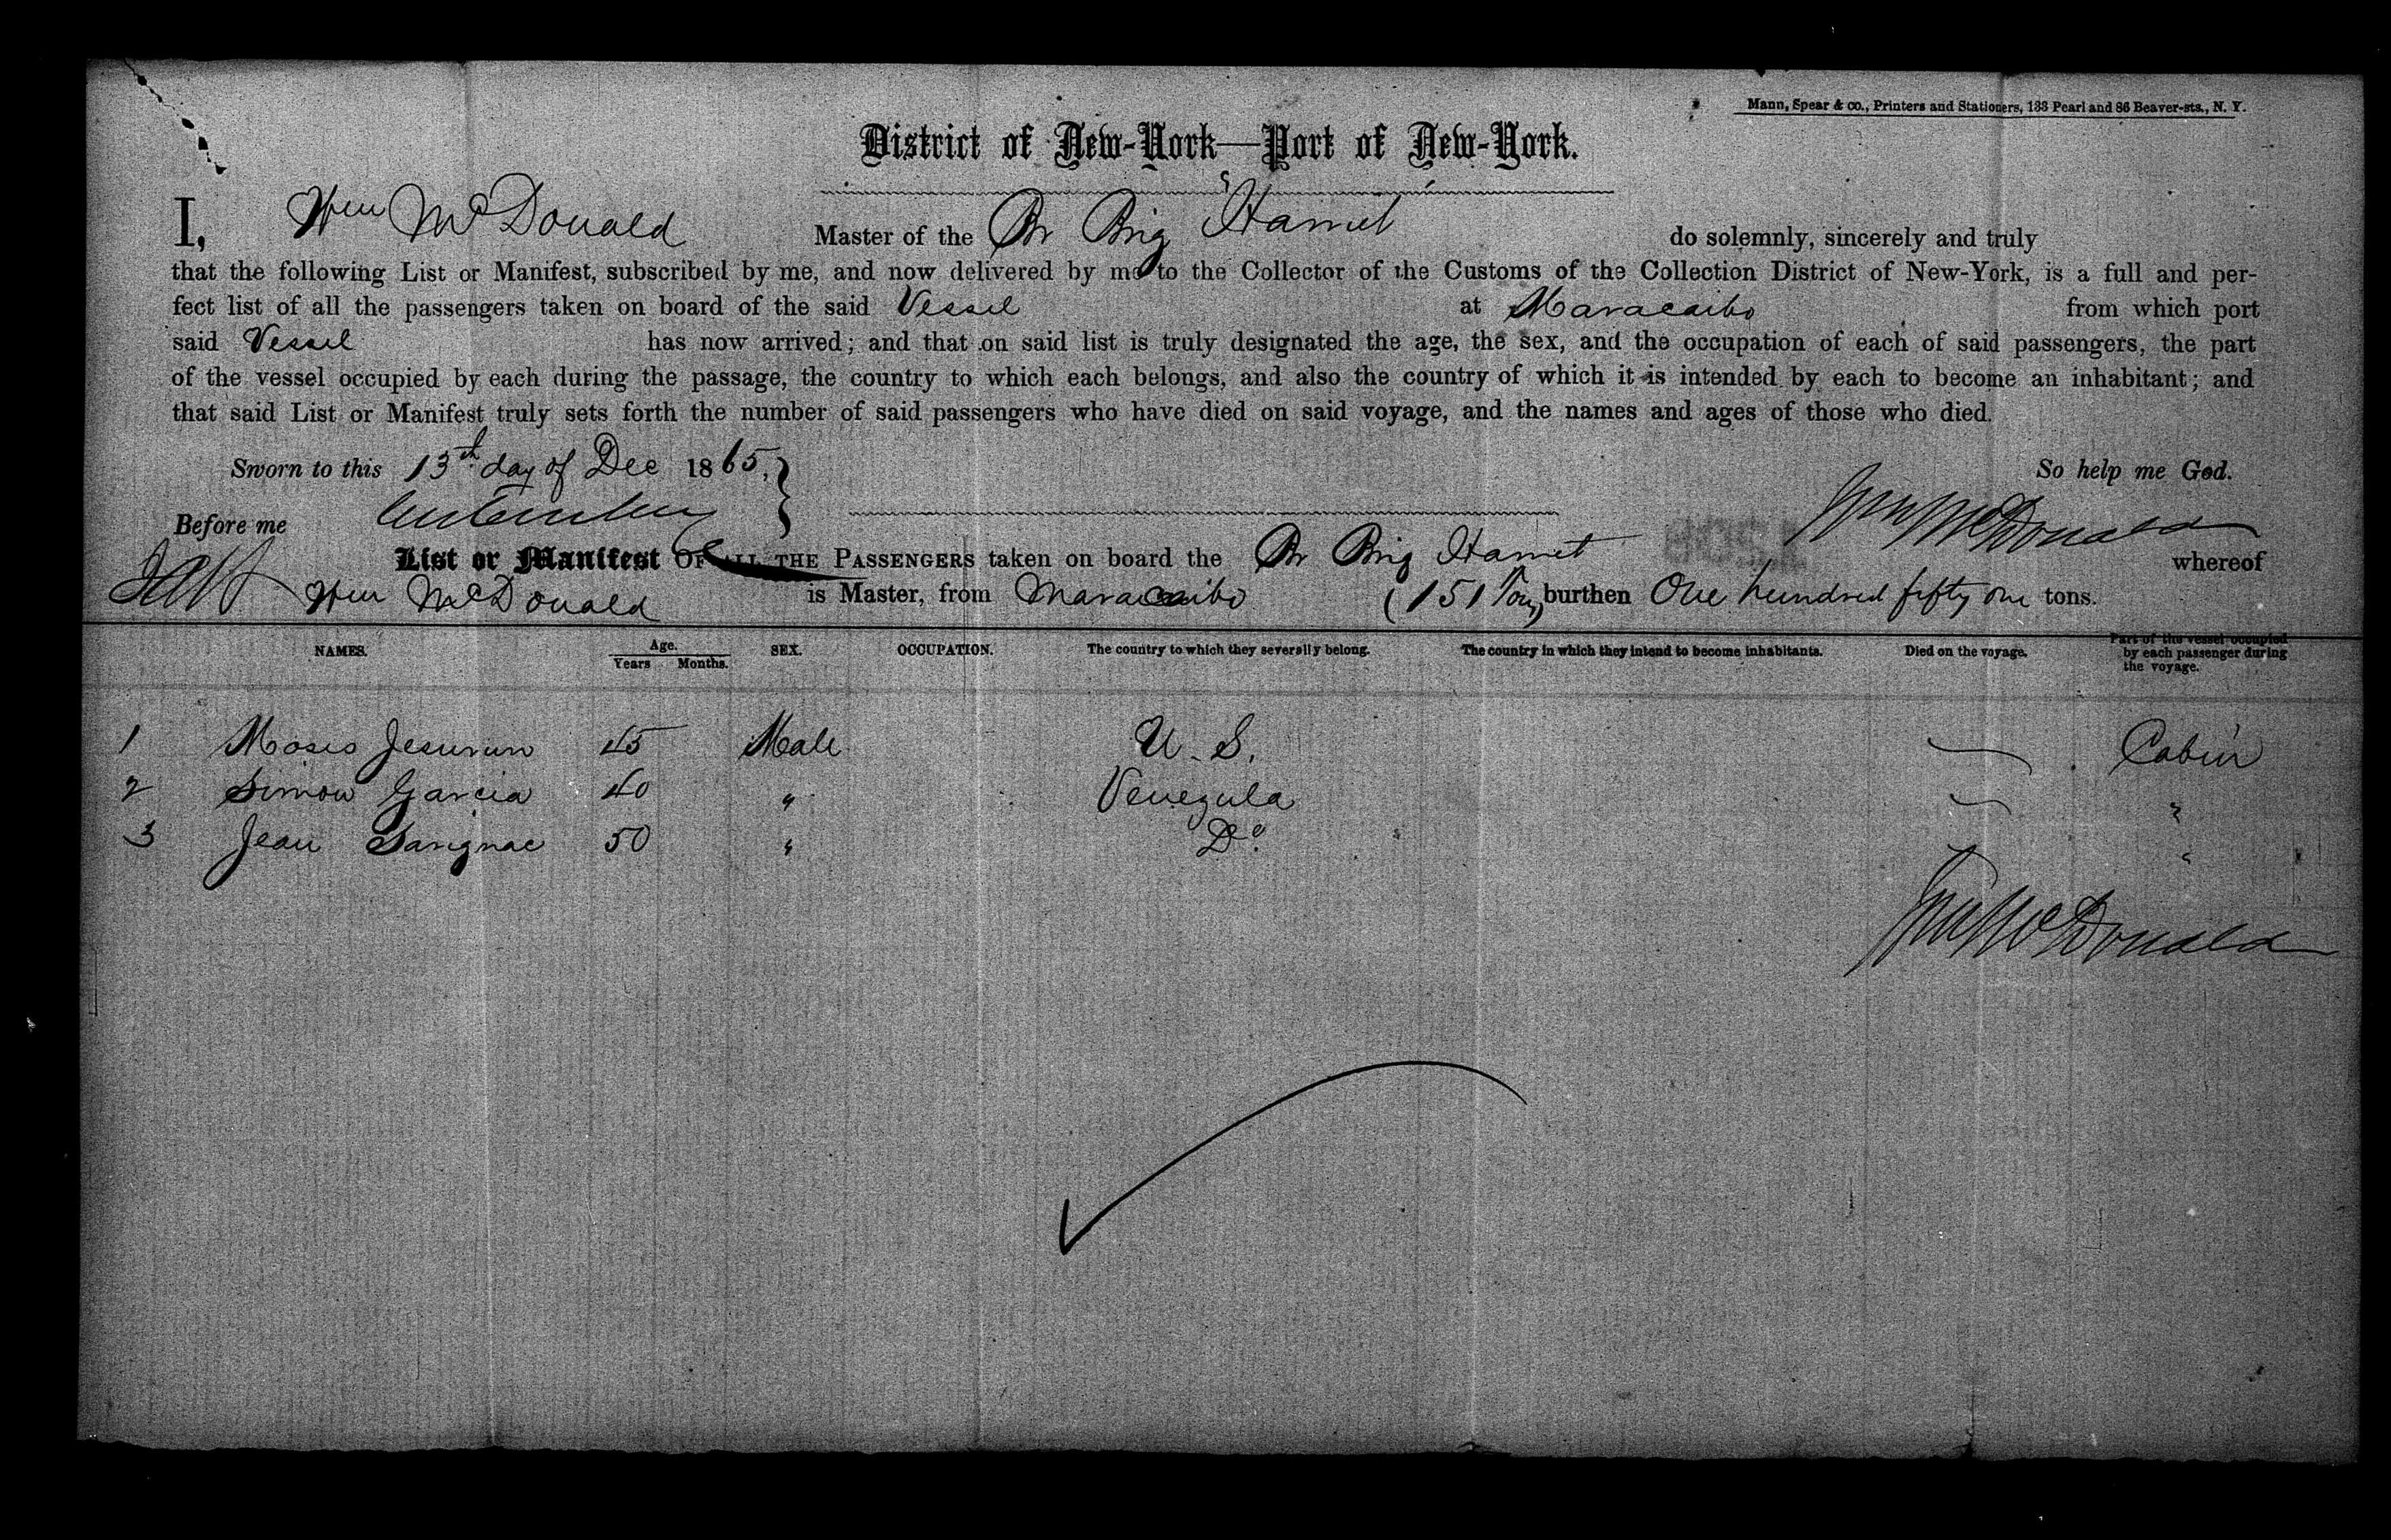 Mann, Spear & co., Printers and Stationers, 133 Pearl and 86 Beaver-sts., N. Y.
District of New-York—Port of New-York.
I, Wm McDonald Master of the Br Brig Harriet do solemnly, sincerely and truly
that the following List or Manifest, subscribed by me, and now delivered by me to the Collector of the Customs of the Collection District of New-York, is a full and per-
fect list of all the passengers taken on board of the said Vessel at Maracaibo from which port
said Vessel has now arrived; and that on said list is truly designated the age, the sex, and the occupation of each of said passengers, the part
of the vessel occupied by each during the passage, the country to which each belongs, and also the country of which it is intended by each to become an inhabitant; and
that said List or Manifest truly sets forth the number of said passengers who have died on said voyage, and the names and ages of those who died.
Sworn to this 13th day of Dec 1865, So help me God.
Before me Wm McDonald
List or Manifest OF ALL THE PASSENGERS taken on board the Br Brig Harriet whereof
Wm McDonald is Master, from Maracaibo (151 Tons) burthen One hundred fifty one tons.
NAMES. Age. Years Months. SEX. OCCUPATION. The country to which they severally belong. The country in which they intend to become inhabitants. Died on the voyage. Part of the vessel occupied by each passenger during the voyage.
1 Moses Jesurun 45 Male U. S. — Cabin
2 Simon Garcia 40 " Venezula — "
3 Jean Savignac 50 " Do. — "
Wm McDonald